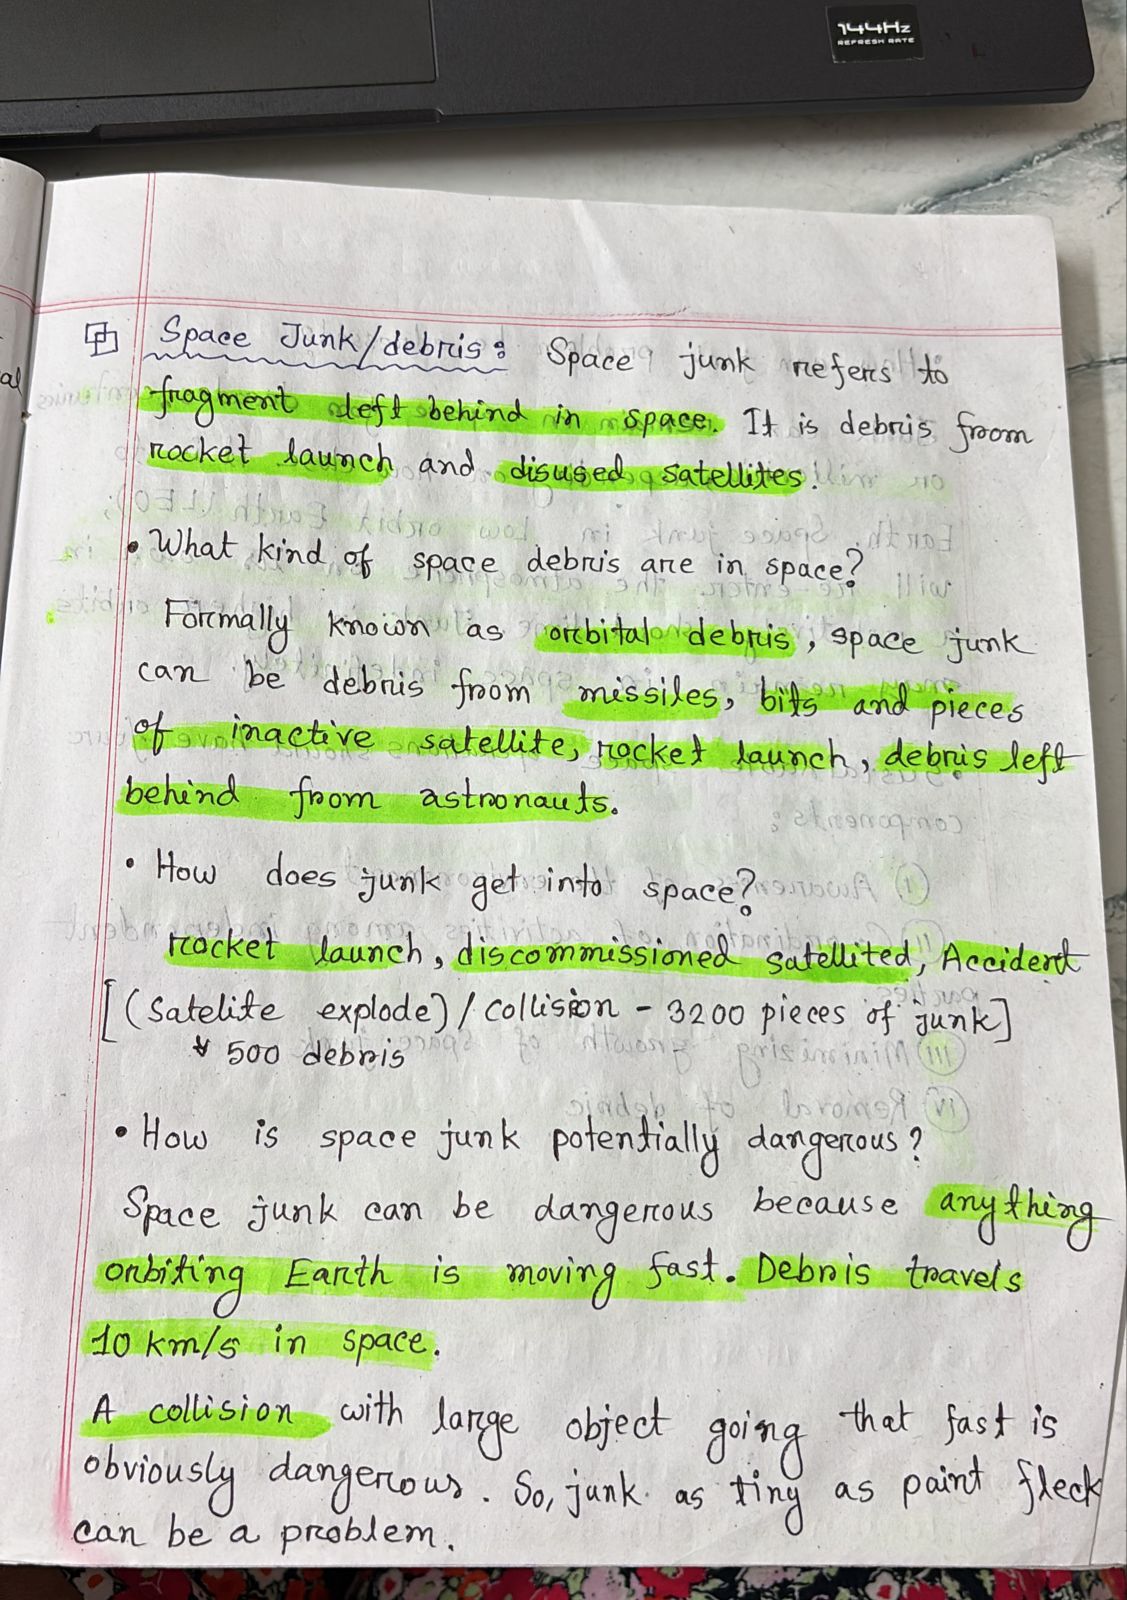 144Hz
REFRESH RATE
al
Space Junk/debris: Space junk refers to
fragment left behind in space. It is debris from
rocket launch and disused satellites.
• What kind of space debris are in space?
Formally known as orbital debris, space junk
can be debris from missiles, bits and pieces
of inactive satellite, rocket launch, debris left
behind from astronauts.
• How does junk get into space?
rocket launch, discommissioned satellited, Accident
[(Satelite explode)/collision - 3200 pieces of junk]
500 debris
• How is space junk potentially dangerous?
Space junk can be dangerous because anything
orbiting Earth is moving fast. Debris travels
10 km/s in space.
A collision with large object going that fast is
obviously dangerous. So, junk as tiny as paint fleck
can be a problem.